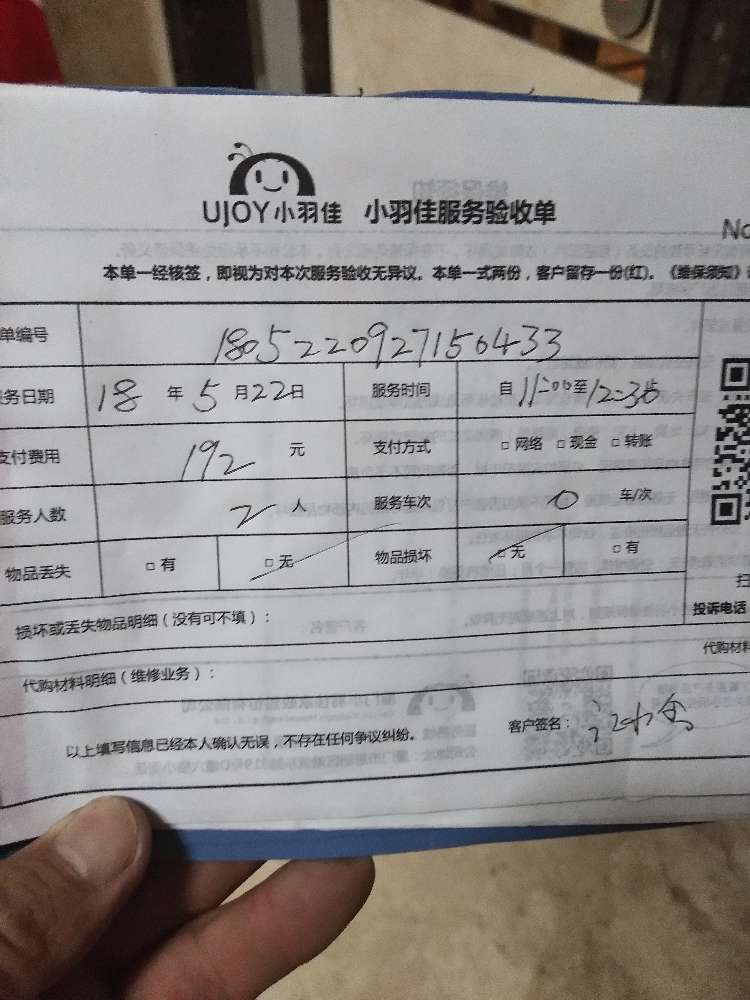 UJOY小羽佳 小羽佳服务验收单
No
本单一经核签，即视为对本次服务验收无异议。本单一式两份，客户留存一份(红)。《维保须知》
单编号 1805220927156433
务日期 18 年 5 月 22 日 服务时间 自 11:00 至 12:36 止
支付费用 192 元 支付方式 □ 网络 □ 现金 □ 转账
服务人数 2 人 服务车次 0 车/次
物品丢失 □ 有 □ 无 物品损坏 □ 无 □ 有
扫
损坏或丢失物品明细（没有可不填）：
投诉电话
代购材料明细（维修业务）：
代购材料
以上填写信息已经本人确认无误，不存在任何争议纠纷。 客户签名：